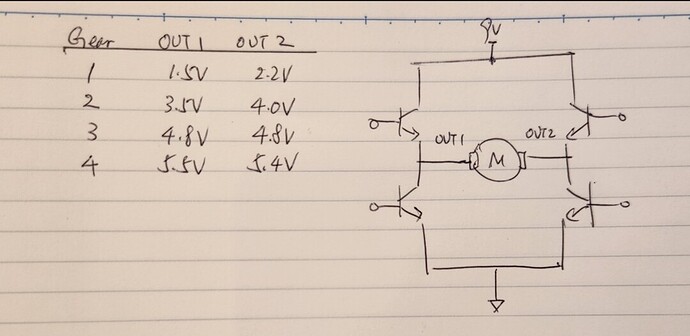 Gear OUT1 OUT2
1 1.5V 2.2V
2 3.5V 4.0V
3 4.8V 4.8V
4 5.5V 5.4V
9V
OUT1 M OUT2